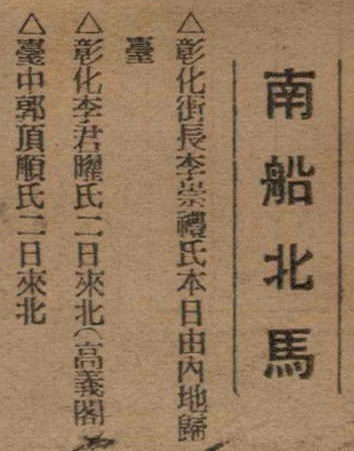 南船北馬
△彰化街長李崇禮氏本日由內地歸
臺
△彰化李君曜氏二日來北(高義閣
△臺中郭頂順氏二日來北